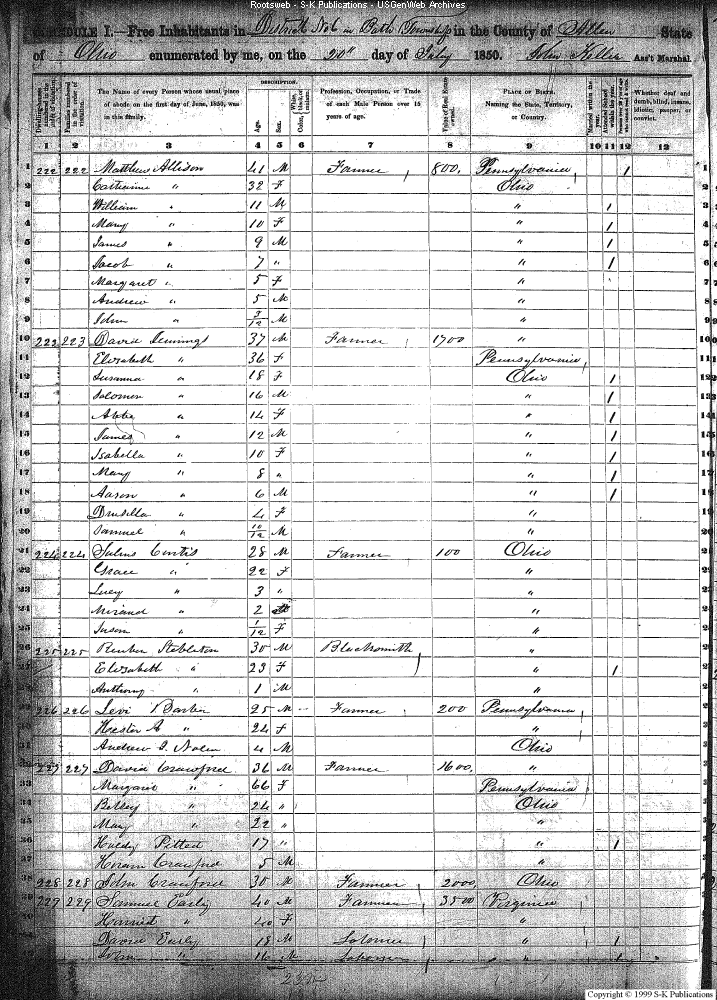 Rootsweb - S-K Publications - USGenWeb Archives
SCHEDULE I.—Free Inhabitants in District No 6 in Bath Township in the County of Allen State
of Ohio enumerated by me, on the 20th day of July 1850. John Keller Ass't Marshal.
The Name of every Person whose usual place of abode on the first day of June, 1850, was in this family.
DESCRIPTION.
Age. Sex. Color,
Profession, Occupation, or Trade of each Male Person over 15 years of age.
Value of Real Estate owned.
PLACE OF BIRTH. Naming the State, Territory, or Country.
Married within the year. Attended School within the year.
Whether deaf and dumb, blind, insane, idiotic, pauper, or convict.
1 2 3 4 5 6 7 8 9 10 11 12 13
1 222 222 Matthew Allison 41 M Farmer 800 Pennsylvania / 1
2 Catharine " 32 F Ohio 2
3 William " 11 M " / 3
4 Mary " 10 F " / 4
5 James " 9 M " / 5
6 Jacob " 7 " " / 6
7 Margaret " 5 F " 7
8 Andrew " 5 M " 8
9 John " 3/12 M " 9
10 222 223 David Jennings 37 M Farmer 1700 " 10
11 Elizabeth " 36 F Pennsylvania 11
12 Susanna " 18 F Ohio / 12
13 Solomon " 16 M " / 13
14 Abbe " 14 F " / 14
15 James " 12 M " / 15
16 Isabella " 10 F " / 16
17 Mary " 8 " " / 17
18 Aaron " 6 M " / 18
19 Drusilla " 4 F "
20 Samuel " 10/12 M "
21 224 224 Curtis 28 M Farmer 100 Ohio
22 Grace " 22 F "
23 Lucy " 3 " "
24 " 2 "
25 " 1/12 F "
26 225 225 Reuben Stebleton 30 M Blacksmith "
Elizabeth " 23 F " /
Anthony " 1 M "
226 226 Levi Barber 25 M Farmer 200 Pennsylvania
Hester A " 24 F "
Andrew J. Nolen 4 M Ohio
227 227 David Crawford 36 M Farmer 1600 "
Margaret " 66 F Pennsylvania
Betsey " 24 " Ohio
Mary " 22 " "
Pitted 17 " " /
Hiram Crawford 5 M "
228 228 John Crawford 30 M Farmer 2000 Ohio
229 229 Samuel Early 40 M Farmer 3500 Virginia
Harriet " 40 F "
David Early 18 M "
John " 16 M "
Copyright © 1999 S-K Publications